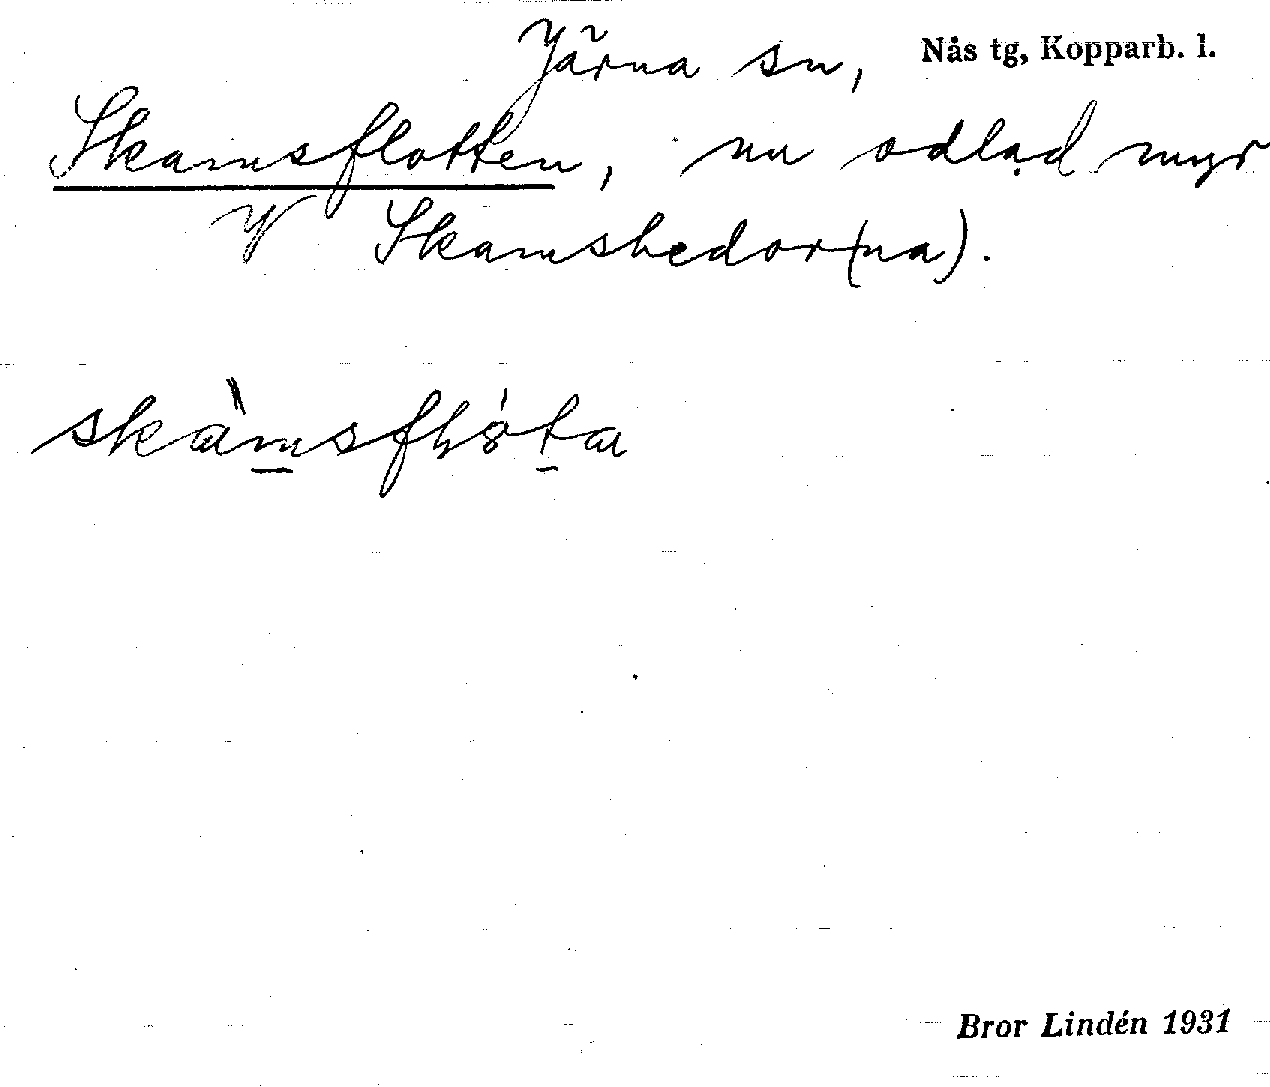 Järna sn, Nås tg, Kopparb. l.
Skamsflotten, nu odlad myr
V Skamshedor(na).
skàmsflóta
Bror Lindén 1931